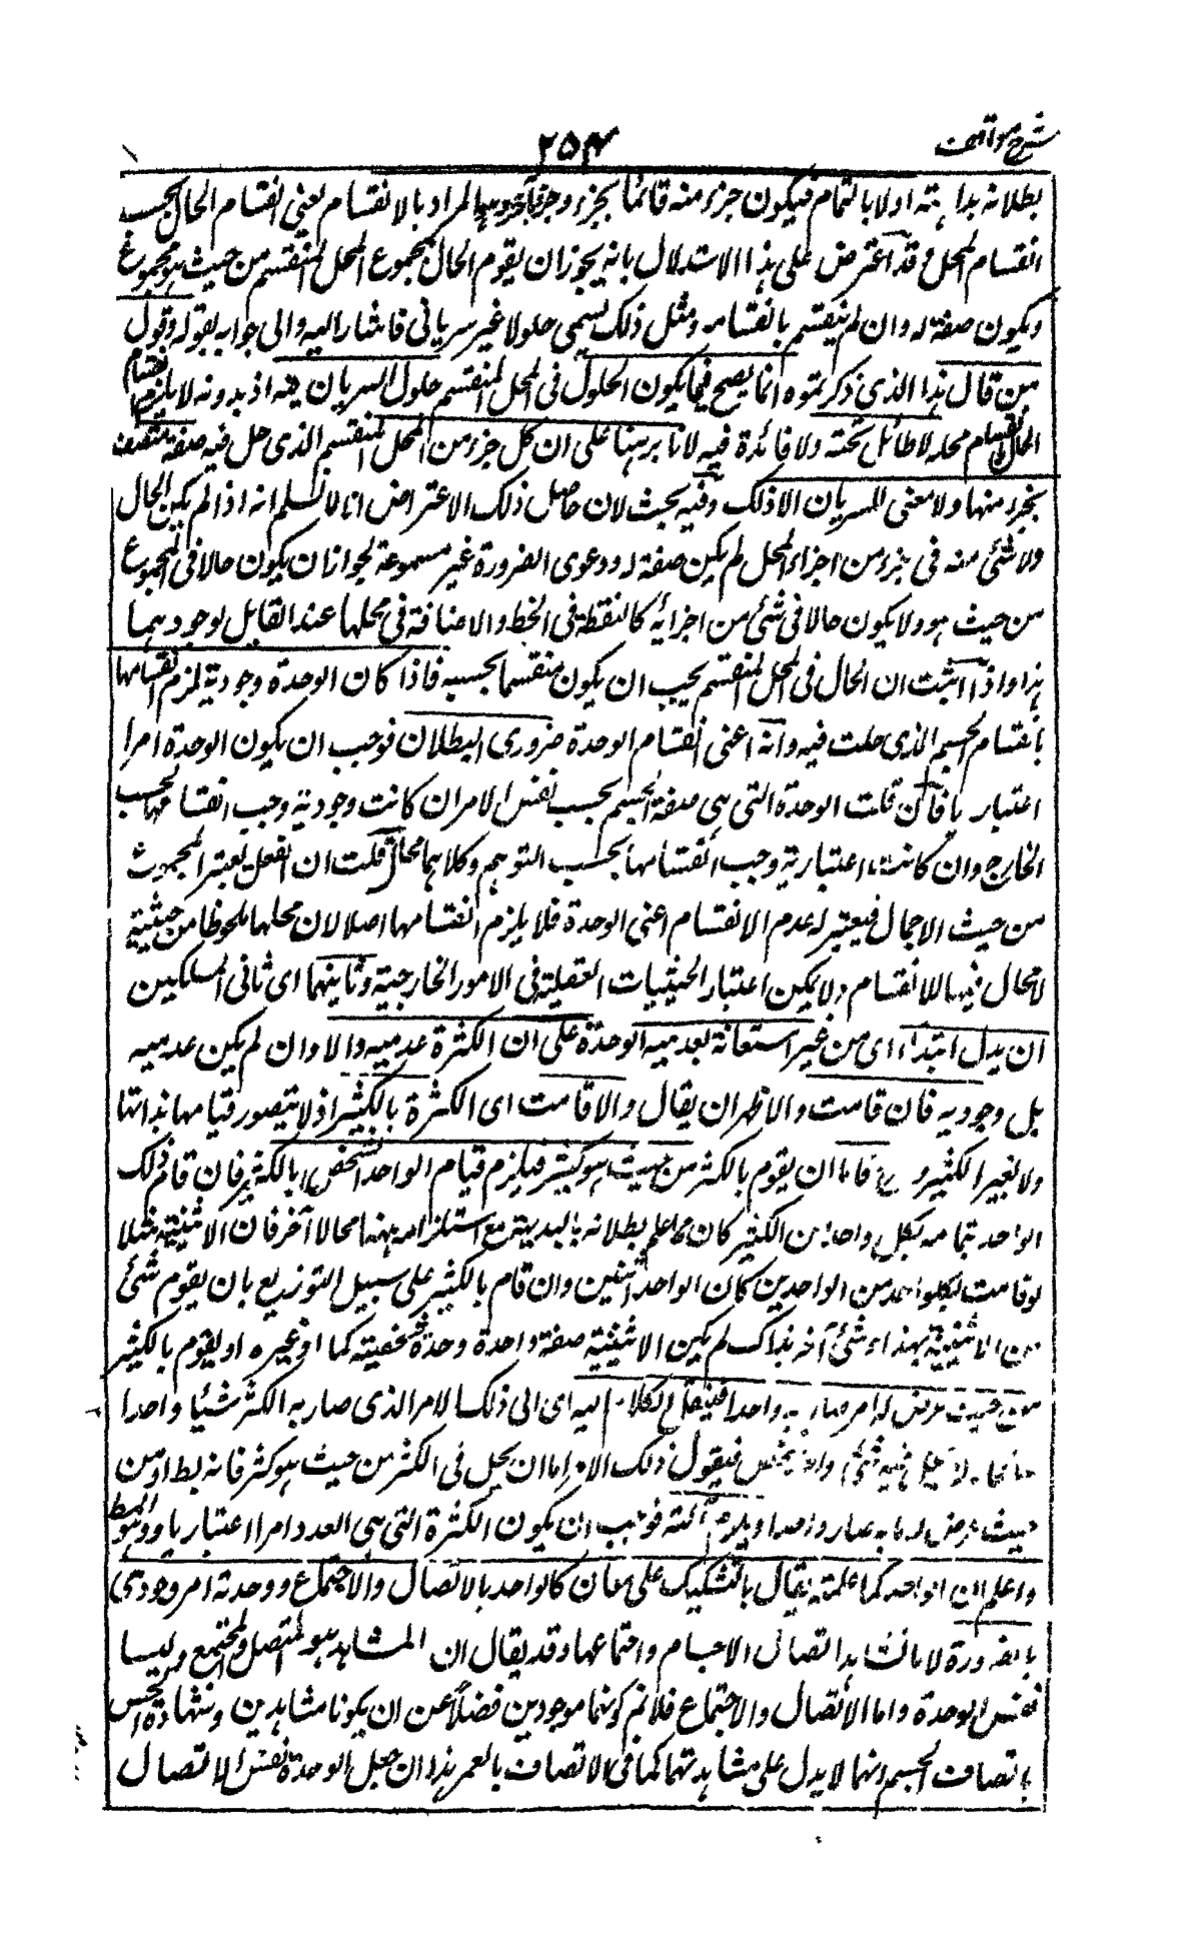 شرح مواقف
۲۵۴
بطلانه بداهته اولا بالتمام فيكون جزء منه قائما بجزء وجزء آخر المراد بالانقسام يعنى انقسام الحال بحسب
انقسام المحل وقد اعترض على هذا الاستدلال بانه يجوز ان يقوم الحال بمجموع المحل المنقسم من حيث هو مجموع
ويكون صفة له وان لم ينقسم بانقسامه ومثل ذلك يسمى حلولا غير سريانى فاشار اليه والى جوابه بقوله وقول
من قال هذا الذى ذكرتموه انما يصح فيما يكون الحلول فى المحل المنقسم حلول السريان فيه اذ بدونه لا يلزم انقسام
الحال بانقسام محله لا طائل تحته ولا فائدة فيه لانا برهنا على ان كل جزء من المحل المنقسم الذى حل فيه صفة متصف
بجزء منها ولا معنى للسريان الا ذلك وفيه بحث لان حاصل ذلك الاعتراض انا لا نسلم انه اذا لم يكن الحال
ولا شئ منه فى جزء من اجزاء المحل لم يكن صفة له ودعوى الضرورة غير مسموعة لجواز ان يكون حالا فى المجموع
من حيث هو ولا يكون حالا فى شئ من اجزائه كالنقطة فى الخط والاضافة فى محلها عند القايل لوجودهما
هذا واذا اثبت ان الحال فى المحل المنقسم يجب ان يكون منقسما بحسبه فاذا كان الوحدة وجودية لزم انقسامها
بانقسام الجسم الذى حلت فيه وانه اعنى انقسام الوحدة ضرورى البطلان فوجب ان يكون الوحدة امرا
اعتباريا فان قلت الوحدة التى هى صفة الجسم بحسب نفس الامر ان كانت وجودية وجب انقسامها بحسب
الخارج وان كانت اعتبارية وجب انقسامها بحسب التوهم وكلاهما محال قلت ان العقل يعتبر المجموع
من حيث الاجمال فيعتبر له عدم الانقسام اعنى الوحدة فلا يلزم انقسامها اصلا لان محلها ملحوظا من حيثية
لا مجال فيها للانقسام ولا يمكن اعتبار الحيثيات العقلية فى الامور الخارجية وثانيهما اى ثانى المسلكين
ان يدل ابتداء اى من غير استعانة بعدمية الوحدة على ان الكثرة عدمية والا وان لم يكن عدمية
بل وجودية فان قامت والاظهر ان يقال والا قامت اى الكثرة بالكثير اذ لا يتصور قيامها بذاتها
ولا بغير الكثير وح فاما ان يقوم بالكثير من حيث هو كثير فيلزم قيام الواحد الشخص بالكثير فان قام ذلك
الواحد بتمامه بكل واحد من الكثير كان مما علم بطلانه بالبديهة مع استلزامه ههنا محالا آخر فان الاثنينية مثلا
لو قامت بكل واحد من الواحدين كان الواحد اثنين وان قام بالكثير على سبيل التوزيع بان يقوم شئ
من الاثنينية بهذا وشئ آخر بذاك لم يكن الاثنينية صفة واحدة وحدة شخصية كما او غيره او يقوم بالكثير
من حيث عرض له امر صار به واحدا فينقل الكلام اليه اى الى ذلك الامر الذى صار به الكثير شيئا واحدا
فيقول ذلك الامر اما ان يحل فى الكثير من حيث هو كثير فانه بط او من
حيث عرض له ما به صار واحدا ويلزم فوجب ان يكون الكثرة التى هى العدد امرا اعتباريا وهو المط
واعلم ان الواحد كما علمته يقال بالتشكيك على معان كالواحد بالاتصال والاجتماع ووحدته امر وجودى
بالضرورة لانا نشاهد اتصال الاجسام واجتماعها وقد يقال ان المشاهد هو المتصل والمجتمع وليسا
نفس الوحدة واما الاتصال والاجتماع فلا نم كونهما موجودين فضلا عن ان يكونا مشاهدين وشهادة الحس
باتصاف الجسم بهما لا يدل على مشاهدتهما كما فى الاتصاف بالعمى هذا ان جعل الوحدة نفس الاتصال